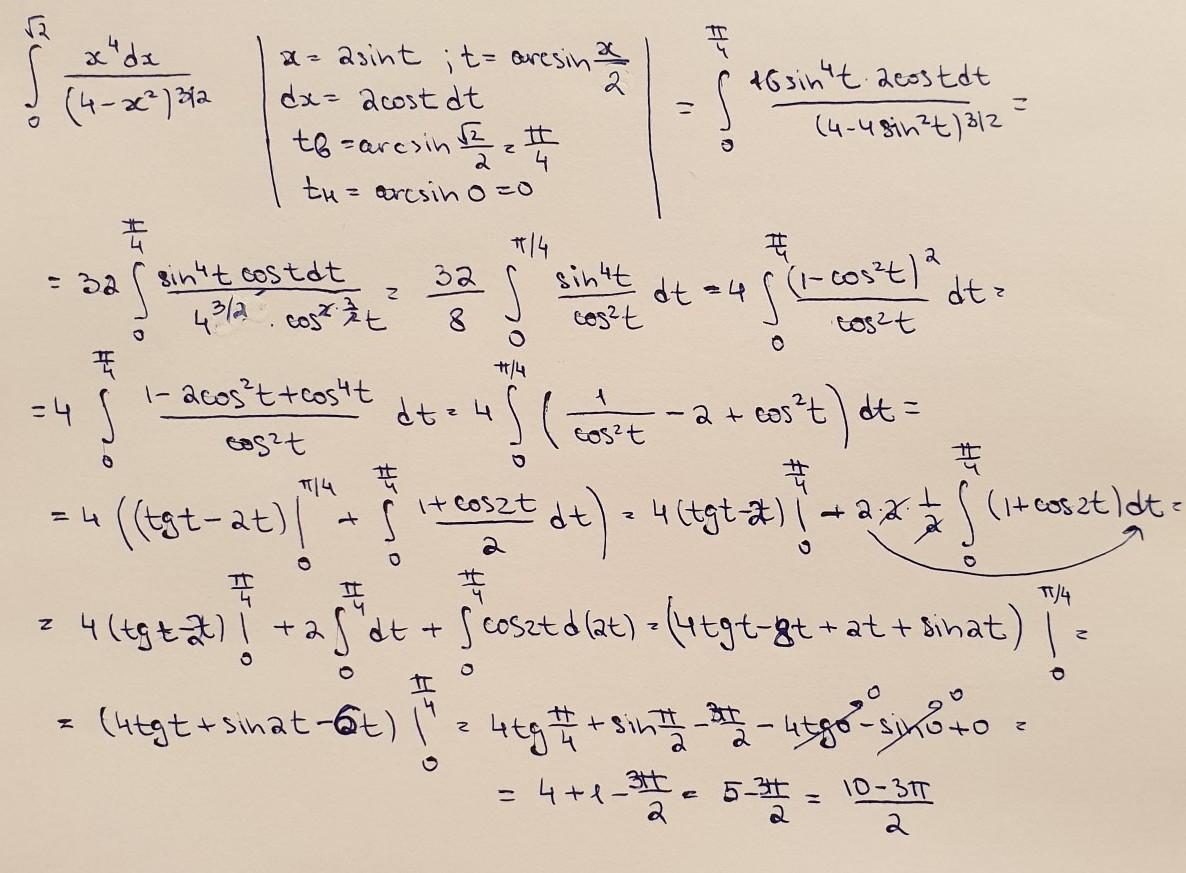 ∫₀^√2 x⁴dx/(4-x²)^3/2 | x = 2sint ; t = arcsin x/2 | = ∫₀^π/4 16sin⁴t·2costdt/(4-4sin²t)^3/2 =
dx = 2costdt
tв = arcsin √2/2 = π/4
tн = arcsin 0 = 0
= 32 ∫₀^π/4 sin⁴t costdt/(4^3/2 · cos^2·3/2 t) = 32/8 ∫₀^π/4 sin⁴t/cos²t dt = 4 ∫₀^π/4 (1-cos²t)²/cos²t dt =
= 4 ∫₀^π/4 (1-2cos²t+cos⁴t)/cos²t dt = 4 ∫₀^π/4 (1/cos²t - 2 + cos²t) dt =
= 4 ((tgt-2t)|₀^π/4 + ∫₀^π/4 (1+cos2t)/2 dt) = 4(tgt-2t)|₀^π/4 + 2·2·1/2 ∫₀^π/4 (1+cos2t)dt =
= 4(tgt-2t)|₀^π/4 + 2∫₀^π/4 dt + ∫₀^π/4 cos2td(2t) = (4tgt-8t+2t+sin2t)|₀^π/4 =
= (4tgt+sin2t-6t)|₀^π/4 = 4tg π/4 + sin π/2 - 3π/2 - 4tg0 ⁰ - sin0 ⁰ + 0 =
= 4+1-3π/2 = 5-3π/2 = (10-3π)/2